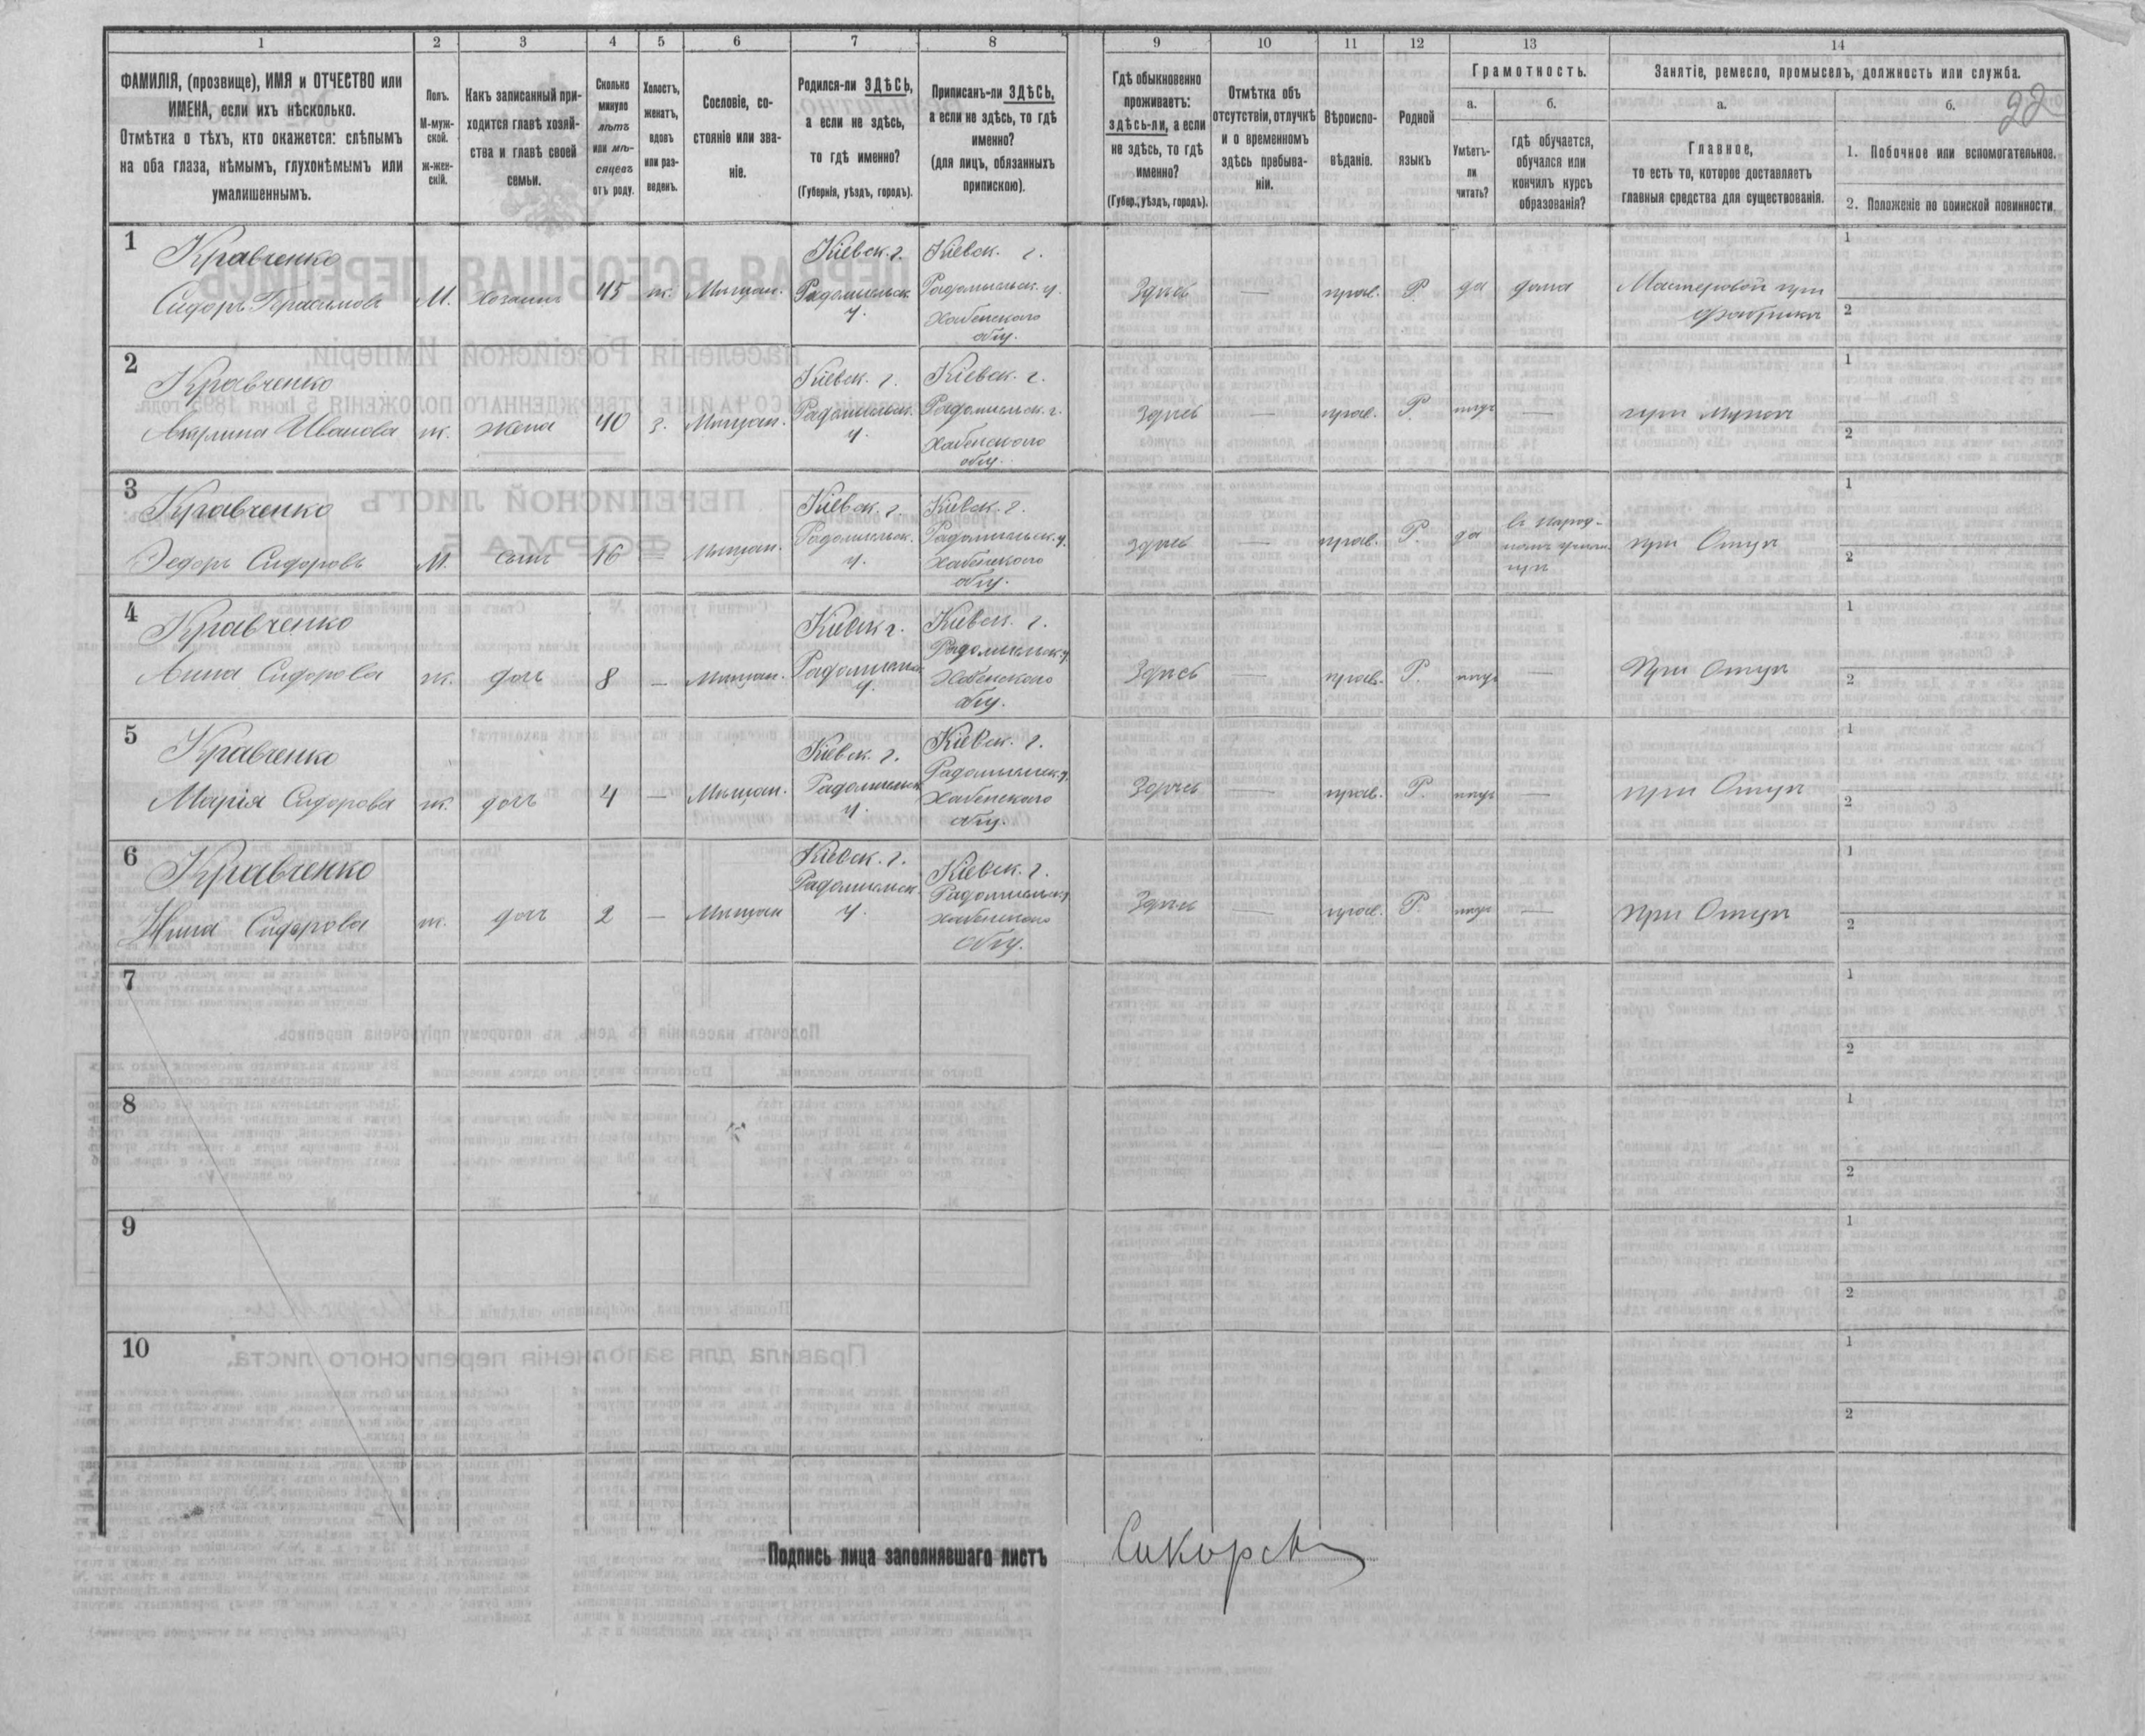 1 2 3 4 5 6 7 8 9 10 11 12 13 14
ФАМИЛІЯ, (прозвище), ИМЯ и ОТЧЕСТВО или
ИМЕНА, если ихъ нѣсколько.
Отмѣтка о тѣхъ, кто окажется: слѣпымъ
на оба глаза, нѣмымъ, глухонѣмымъ или
умалишеннымъ.
Полъ.
М-муж-
ской.
Ж-жен-
скій.
Какъ записанный при-
ходится главѣ хозяй-
ства и главѣ своей
семьи.
Сколько
минуло
лѣтъ
или мѣ-
сяцевъ
отъ роду.
Холостъ,
женатъ,
вдовъ
или раз-
веденъ.
Сословіе, со-
стояніе или зва-
ніе.
Родился-ли ЗДѢСЬ,
а если не здѣсь,
то гдѣ именно?
(Губернія, уѣздъ, городъ).
Приписанъ-ли ЗДѢСЬ,
а если не здѣсь, то гдѣ
именно?
(для лицъ, обязанныхъ
припискою).
Гдѣ обыкновенно
проживаетъ:
здѣсь-ли, а если
не здѣсь, то гдѣ
именно?
(Губер., уѣздъ, городъ).
Отмѣтка объ
отсутствіи, отлучкѣ
и о временномъ
здѣсь пребыва-
ніи.
Вѣроиспо-
вѣданіе.
Родной
языкъ
Грамотность.
а.
Умѣетъ-
ли
читать?
б.
гдѣ обучается,
обучался или
кончилъ курсъ
образованія?
Занятіе, ремесло, промыселъ, должность или служба.
а.
Главное,
то есть то, которое доставляетъ
главныя средства для существованія.
б.
22
1. Побочное или вспомогательное.
2. Положеніе по воинской повинности.
1
Кравченко
Сидоръ Герасимовъ М. хозяинъ 45 ж. Мѣщан.
Кіевск. г.
Радомысльск.
у.
Кіевск. г.
Радомысльск. у.
Хабенского
общ.
Здѣсь — прав. Р. да дома
Мастеровой при
фабрикѣ
1
2
2
Кравченко
Акулина Иванова ж. жена 40 з. Мѣщан.
Кіевск. г.
Радомысльск.
у.
Кіевск. г.
Радомысльск. г.
Хабенского
общ.
Здѣсь — прав. Р. нѣтъ —
при мужѣ
1
2
3
Кравченко
Федоръ Сидоровъ М. сынъ 16 — Мѣщан.
Кіевск. г.
Радомысльск.
у.
Кіевск. г.
Радомысльск. у.
Хабенского
общ.
здѣсь — прав. Р. да
въ народ-
номъ
при Отцѣ
1
2
4
Кравченко
Анна Сидорова ж. дочь 8 — Мѣщан.
Кіевск г.
Радомысльск
у.
Кіевск. г.
Радомысльск у.
Хабенского
общ.
Здѣсь — прав. Р. нѣтъ —
При Отцѣ
1
2
5
Кравченко
Марія Сидорова ж. дочь 4 — Мѣщан.
Кіевск. г.
Радомысльск
у.
Кіевск. г.
Радомысльск. у.
Хабенского
общ.
Здѣсь — прав. Р. нѣтъ —
при Отцѣ
1
2
6
Кравченко
Нина Сидорова ж. дочь 2 — Мѣщан
Кіевск. г.
Радомысльск
у.
Кіевск. г.
Радомысльск. у
Хабенского
общ.
Здѣсь — прав. Р. нѣтъ —
при Отцѣ
1
2
7
1
2
8
1
2
9
1
2
10
1
2
Подпись лица заполнявшаго листъ